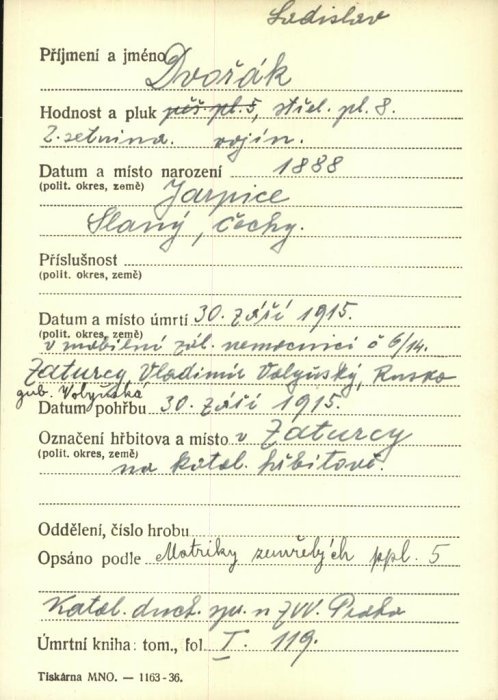 Ladislav
Příjmení a jméno Dvořák
Hodnost a pluk pěš. pl. 5, střel. pl. 8.
2. setnina. vojín.
Datum a místo narození 1888
(polit. okres, země) Jarpice
Slaný, Čechy.
Příslušnost
(polit. okres, země)
Datum a místo úmrtí 30. září 1915.
(polit. okres, země)
v mobilní zál. nemocnici č 6/14.
Zaturcy Vladimir Volyňský, Rusko
gub. Volyňská
Datum pohřbu 30. září 1915.
Označení hřbitova a místo v Zaturcy
(polit. okres, země)
na katol. hřbitově.
Oddělení, číslo hrobu
Opsáno podle Matriky zemřelých ppl. 5
Katol. duch. spr. n ZVV. Praha
Úmrtní kniha: tom., fol I. 119.
Tiskárna MNO. — 1163-36.